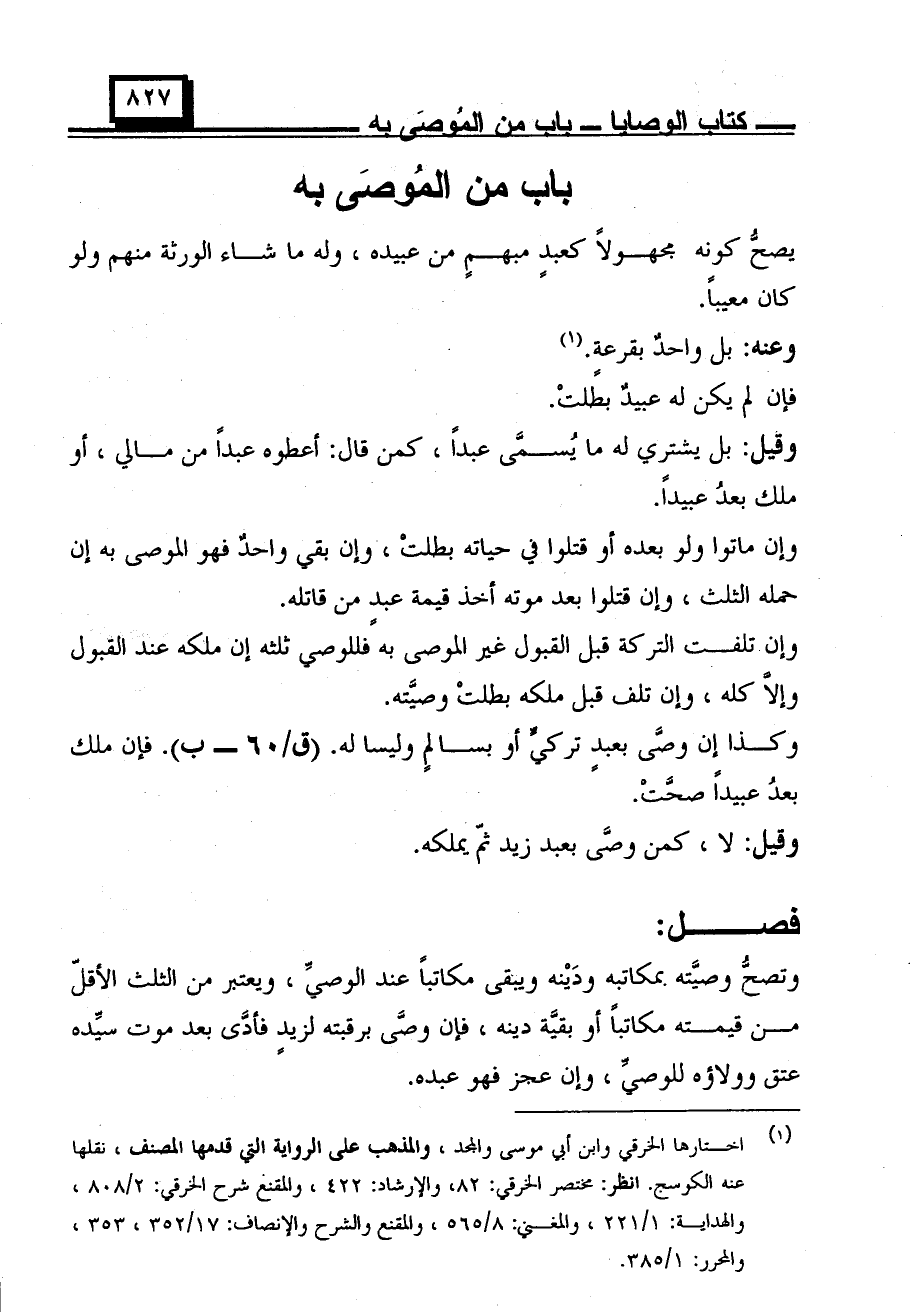 ٨٢٧
كتاب الوصايا ــ باب من المُوصَى به
باب من المُوصَى به
يصحُّ كونه مجهـولاً كعبدٍ مبهـمٍ من عبيده ، وله ما شـاء الورثة منهم ولو
كان معيباً.
وعنه: بل واحدٌ بقرعةٍ.(١)
فإن لم يكن له عبيدٌ بطلتْ.
وقيل: بل يشتري له ما يُسـمَّى عبداً ، كمن قال: أعطوه عبداً من مـالي ، أو
ملك بعدُ عبيداً.
وإن ماتوا ولو بعده أو قتلوا في حياته بطلتْ ، وإن بقي واحدٌ فهو الموصى به إن
حمله الثلث ، وإن قتلوا بعد موته أخذ قيمة عبدٍ من قاتله.
وإن تلفـت التركة قبل القبول غير الموصى به فللوصي ثلثه إن ملكه عند القبول
وإلاَّ كله ، وإن تلف قبل ملكه بطلتْ وصيَّته.
وكـذا إن وصَّى بعبدٍ تركيٍّ أو بسـالمٍ وليسا له. (ق/٦٠ ــ ب). فإن ملك
بعدُ عبيداً صحَّتْ.
وقيل: لا ، كمن وصَّى بعبد زيد ثمّ يملكه.
فصـــل:
وتصحُّ وصيَّته بمكاتبه ودَيْنه ويبقى مكاتباً عند الوصيِّ ، ويعتبر من الثلث الأقلّ
مـن قيمتـه مكاتباً أو بقيَّة دينه ، فإن وصَّى برقبته لزيدٍ فأدَّى بعد موت سيِّده
عتق وولاؤه للوصيِّ ، وإن عجز فهو عبده.
(١) اخـتارها الخرقي وابن أبي موسى والمجد ، والمذهب على الرواية التي قدمها المصنف ، نقلها
عنه الكوسج. انظر: مختصر الخرقي: ٨٢، والإرشاد: ٤٢٢ ، والمقنع شرح الخرقي: ٨٠٨/٢ ،
والهدايـة: ٢٢١/١ ، والمغـني: ٥٦٥/٨ ، والمقنع والشرح والإنصاف: ٣٥٢/١٧ ، ٣٥٣ ،
والمحرر: ٣٨٥/١.